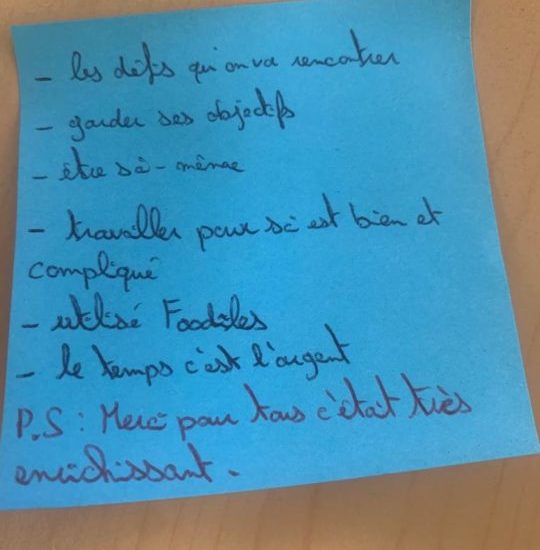 - les défis qu'on va rencontrer
- garder ses objectifs
- être soi-même
- travailler pour soi est bien et
compliqué
- utilisé Foodiles
- le temps c'est l'argent
P.S : Merci pour tous c'était très
enrichissant.